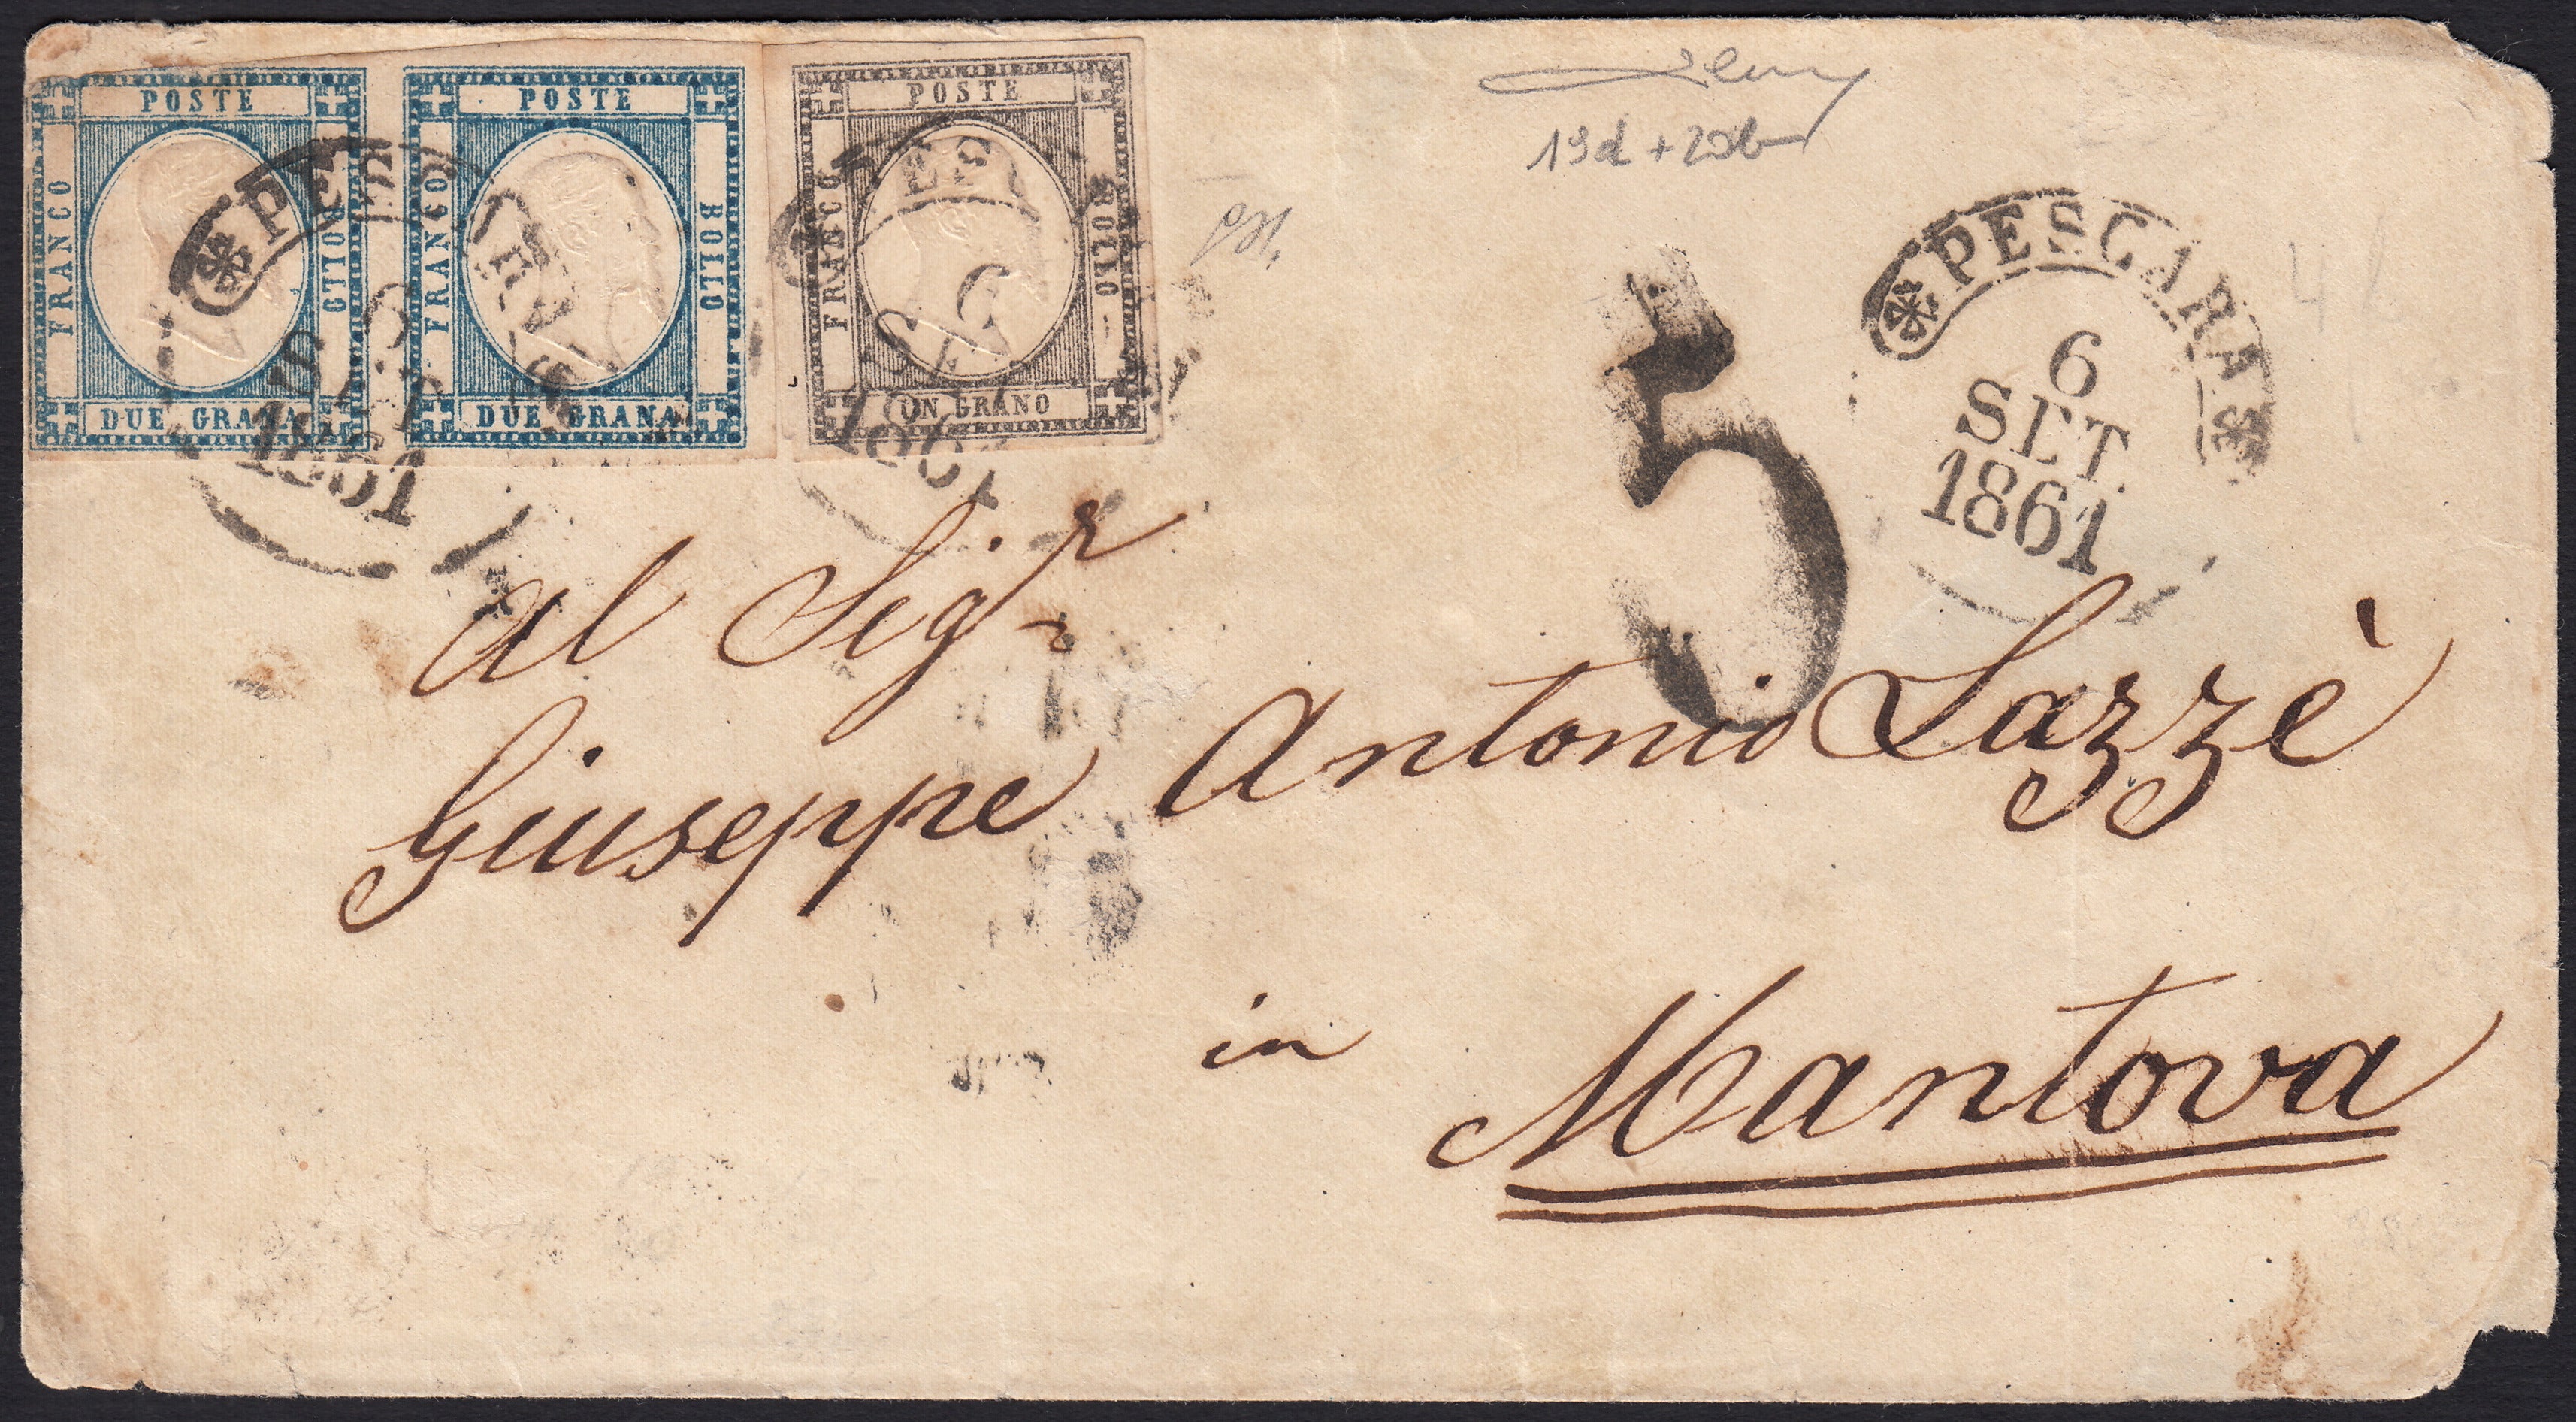 POSTE
FRANCO
BOLLO
DUE GRANA
POSTE
FRANCO
BOLLO
DUE GRANA
POSTE
FRANCO
BOLLO
UN GRANO
1861
6
SET
1861
19d + 20b
5
PESCARA
6
SET.
1861
Al Sigr
Giuseppe Antonio Lazzè
in
Mantova